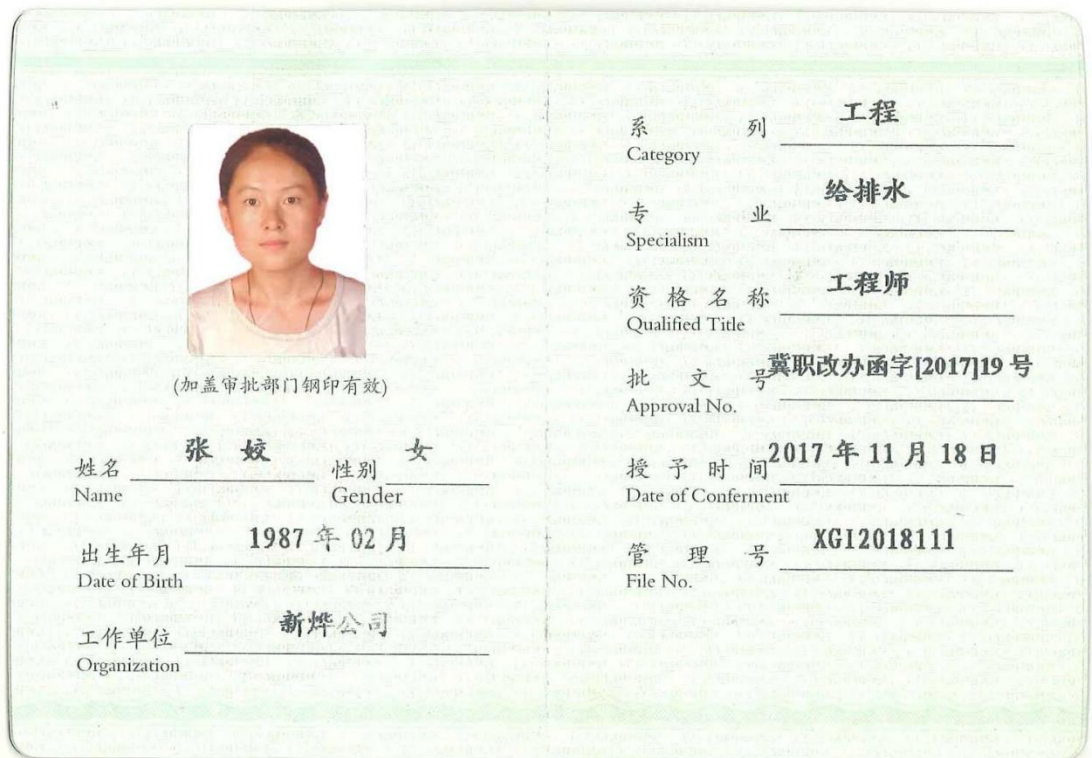 (加盖审批部门钢印有效)
姓名 张 姣 性别 女
Name Gender
出生年月 1987 年 02 月
Date of Birth
工作单位 新烨公司
Organization
系 列 工程
Category
专 业 给排水
Specialism
资 格 名 称 工程师
Qualified Title
批 文 号 冀职改办函字[2017]19 号
Approval No.
授 予 时 间 2017 年 11 月 18 日
Date of Conferment
管 理 号 XGI2018111
File No.